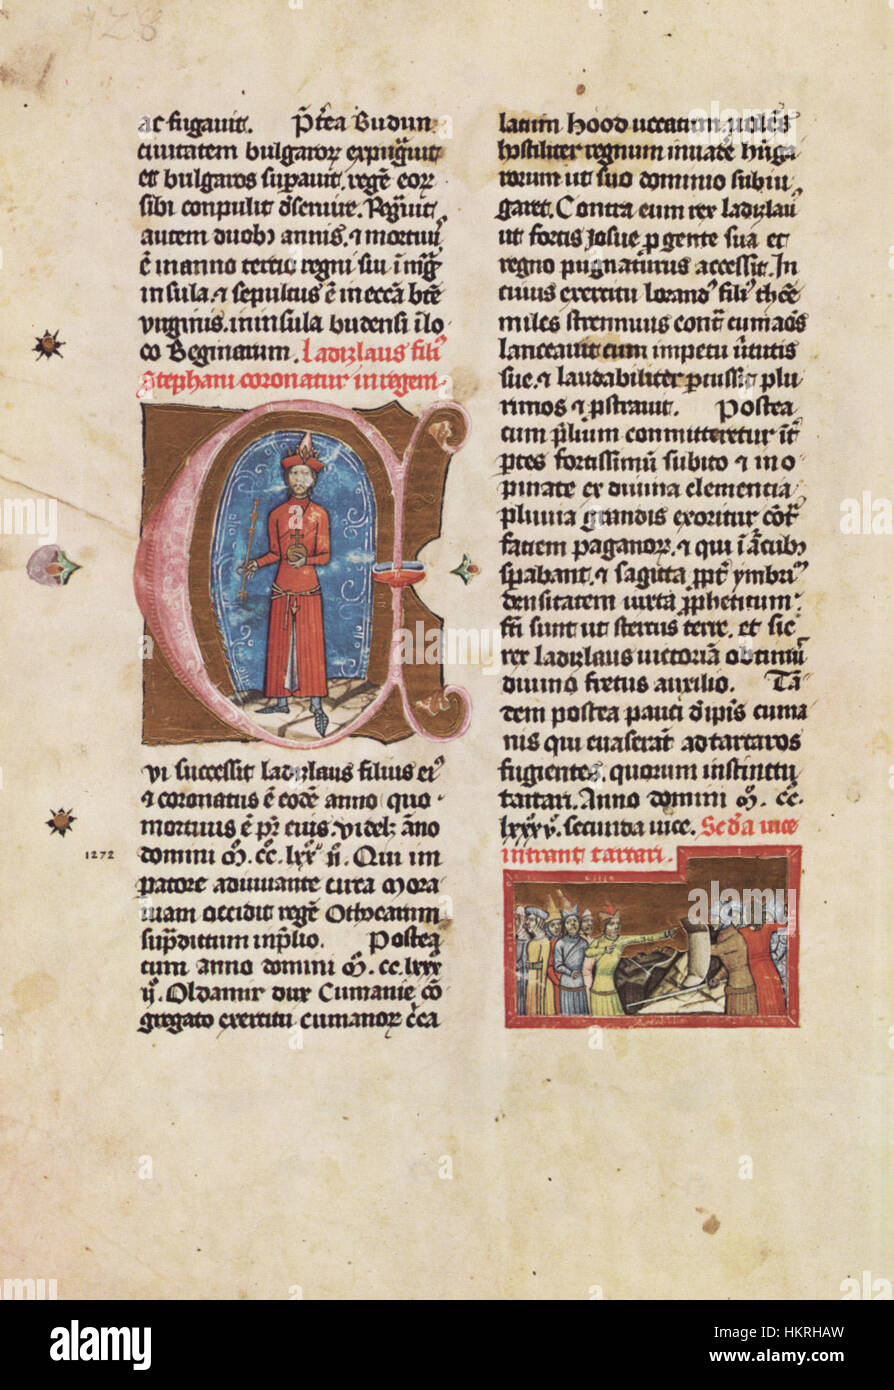 128
ac fugauit. P̄t̄ea Budun
ciuitatem bulgaroꝝ expug̃uit
et bulgaros suꝑauit. regē eoꝝ
sibi conpulit d̄seruire. Reg̃uit
autem duobꝫ annis. ⁊ mortuꝰ
ē in anno tertio regni sui ī mg̃
insula. ⁊ sepultus ē in ecc̄a btē
virginis. in insula budensi ī lo
co Beginarum. Ladizlaus filiꝰ
Stephani coronatur in regem
1272
vi successit ladizlaus filius eiꝰ
⁊ coronatus ē eodē anno quo
mortuus ē pr̄ eius. videlꝫ āno
domini M̄. cc̄. lxxͦ ii. Qui im
patore adiuuante circa Mora
uiam occidit regē Othocarum
sup̄dictum in p̄lio. Postea
cum anno domini M̄. cc. lxxx
ii. Oldamir dux Cumanie cō
gregato exercitu cumanoꝝ c̄ca
lacum Hood uocatum. uolēs
hostiliter regnum inuad̄e hūga
rorum ut suo dominio subiu
garet. Contra eum rex ladizlaꝰ
ut fortis Josue ꝓ gente sua et
regno pugnaturus accessit. In
cuius exercitu lorandꝰ filiꝰ thōe
miles strennuus cont̃ cumaōs
lanceauit cum impetu ūtutis
sue. ⁊ laudabiliter ꝑcussit plu
rimos ⁊ ꝓstrauit. Postea
cum p̄lium committeretur īt̃
ꝑtes fortissimū subito ⁊ ino
pinate ex diuina clementia
pluuia grandis exoritur cōt̃
faciem paganoꝝ. ⁊ qui ī acubꝫ
sꝑabant. ⁊ sagittꝭ ꝓpt̃ ymbriꝰ
densitatem iuxta ꝓpheticum
fc̄i sunt ut stercus terre. et sic
rex ladizlaus uictoriā obtinuī
diuino fretus auxilio. Tā
dem postea pauci d̄ ip̄is cuma
nis qui euaserāt ad tartaros
fugientes. quorum instinctu
tartari. Anno domini M̄. cc̄.
lxxxvͦ. secunda uice. Sed̄a uice
intrant tartari.
alamy stock photo
HKRHAW
www.alamy.com